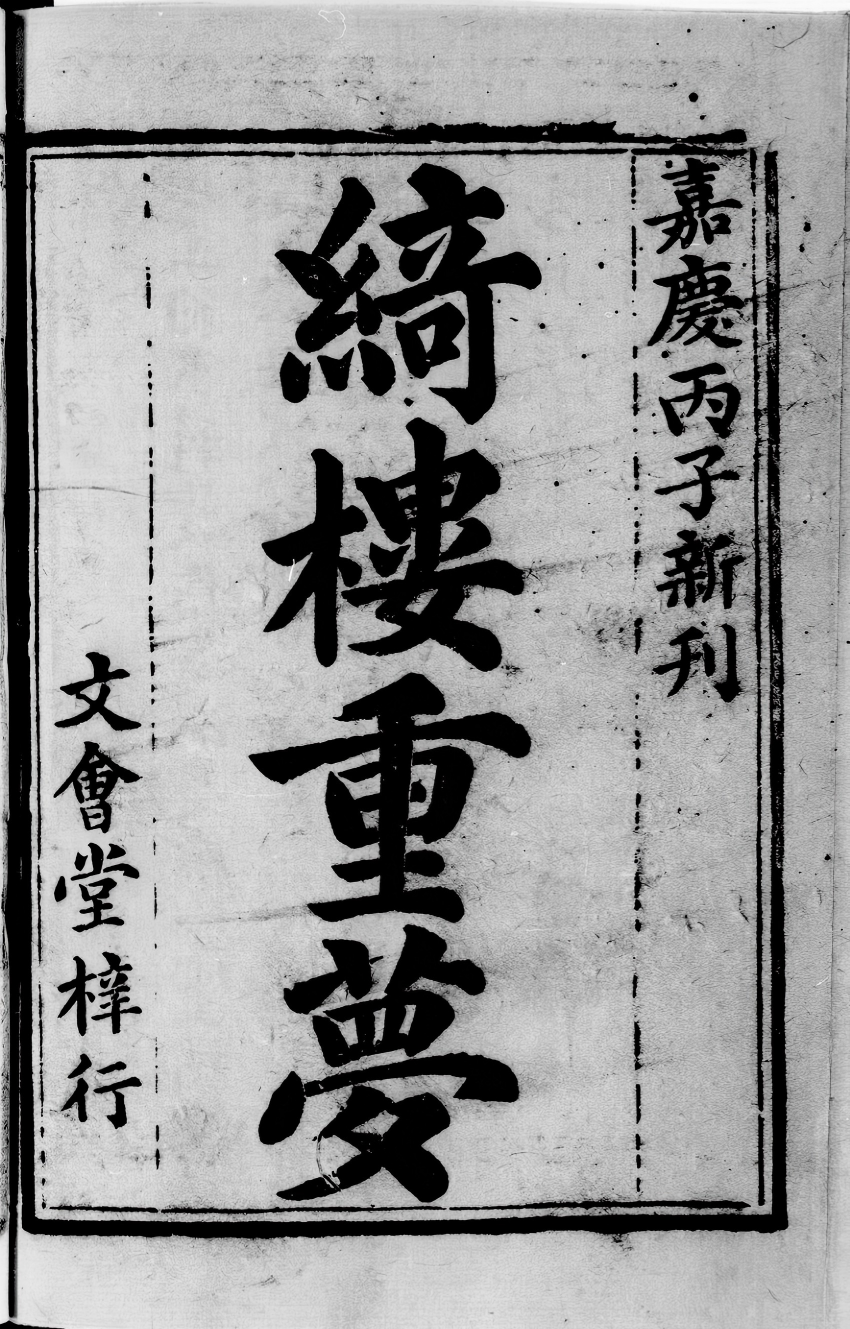 嘉慶丙子新刊
綺樓重夢
文會堂梓行